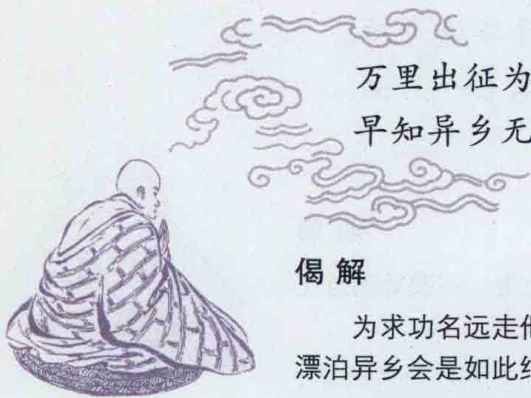 万里出征为
早知异乡无
偈解
为求功名远走
漂泊异乡会是如此